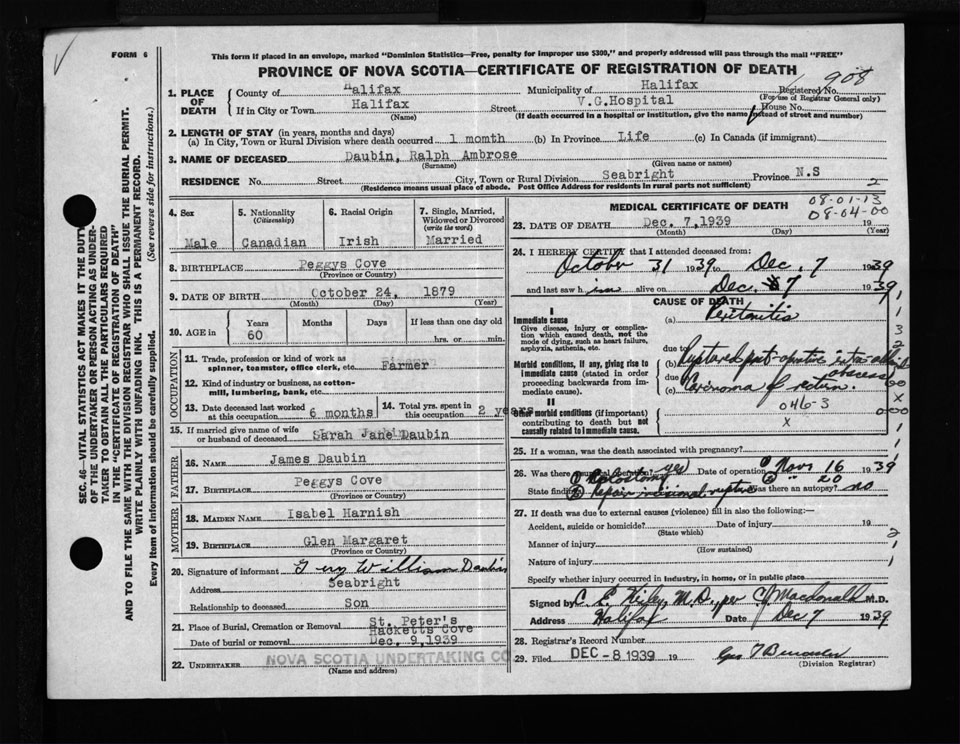 FORM 6
This form if placed in an envelope, marked "Dominion Statistics—Free, penalty for improper use $300," and properly addressed will pass through the mail "FREE"
PROVINCE OF NOVA SCOTIA—CERTIFICATE OF REGISTRATION OF DEATH
908
SEC. 46—VITAL STATISTICS ACT MAKES IT THE DUTY
OF THE UNDERTAKER OR PERSON ACTING AS UNDER-
TAKER TO OBTAIN ALL THE PARTICULARS REQUIRED
IN THE "CERTIFICATE OF REGISTRATION OF DEATH"
AND TO FILE THE SAME WITH THE DIVISION REGISTRAR WHO SHALL ISSUE THE BURIAL PERMIT.
WRITE PLAINLY WITH UNFADING INK. THIS IS A PERMANENT RECORD.
Every item of information should be carefully supplied. (See reverse side for instructions.)
1. PLACE OF DEATH
County of Halifax Municipality of Halifax Registered No.
(For use of Registrar General only)
If in City or Town Halifax Street V.G.Hospital House No.
(Name) (If death occurred in a hospital or institution, give the name instead of street and number)
2. LENGTH OF STAY (in years, months and days)
(a) In City, Town or Rural Division where death occurred 1 momth (b) In Province Life (c) In Canada (if immigrant)
3. NAME OF DECEASED Daubin, Ralph Ambrose
(Surname) (Given name or names)
RESIDENCE No. Street City, Town or Rural Division Seabright Province N.S
(Residence means usual place of abode. Post Office Address for residents in rural parts not sufficient)
2
4. Sex
Male
5. Nationality
(Citizenship)
Canadian
6. Racial Origin
Irish
7. Single, Married,
Widowed or Divorced
(write the word)
Married
8. BIRTHPLACE Peggys Cove
(Province or Country)
9. DATE OF BIRTH October 24, 1879
(Month) (Day) (Year)
10. AGE in
Years Months Days If less than one day old
60 hrs. or min.
OCCUPATION
11. Trade, profession or kind of work as
spinner, teamster, office clerk, etc. Farmer
12. Kind of industry or business, as cotton-
mill, lumbering, bank, etc.
13. Date deceased last worked
at this occupation 6 months
14. Total yrs. spent in
this occupation 2 years
15. If married give name of wife
or husband of deceased Sarah Jane Daubin
FATHER
16. NAME James Daubin
17. BIRTHPLACE Peggys Cove
(Province or Country)
MOTHER
18. MAIDEN NAME Isabel Harnish
19. BIRTHPLACE Glen Margaret
(Province or Country)
20. Signature of informant William Daubin
Address Seabright
Relationship to deceased Son
21. Place of Burial, Cremation or Removal St. Peter's
Hacketts Cove
Date of burial or removal Dec. 9,1939
22. UNDERTAKER NOVA SCOTIA UNDERTAKING CO
(Name and address)
MEDICAL CERTIFICATE OF DEATH
08-01-13
08-04-00
23. DATE OF DEATH Dec. 7,1939 19
(Month) (Day) (Year)
24. I HEREBY CERTIFY that I attended deceased from:
October 31 1939 to Dec. 7 1939
and last saw him alive on Dec. 7 1939
CAUSE OF DEATH
I
Immediate cause
Give disease, injury or complica-
tion which caused death, not the
mode of dying, such as heart failure,
asphyxia, asthenia, etc.
(a) Peritonitis
due to
Morbid conditions, if any, giving rise to
immediate cause (stated in order
proceeding backwards from im-
mediate cause).
(b) Ruptured post-operative intra-
abscess
due
(c) Carcinoma of rectum.
II
Other morbid conditions (if important)
contributing to death but not
causally related to immediate cause.
046-3
X
25. If a woman, was the death associated with pregnancy?
26. Was there a yes Date of operation (1) Nov. 16 1939
(1) Colostomy (2) " 20
State finding (2) Repair incisional Was there an autopsy? no
27. If death was due to external causes (violence) fill in also the following:—
Accident, suicide or homicide? Date of injury 19
(State which)
Manner of injury
(How sustained)
Nature of injury
Specify whether injury occurred in industry, in home, or in public place
Signed by C. E. M.D., per Macdonald M.D.
Address Halifax Date Dec 7 1939
28. Registrar's Record Number
29. Filed DEC -8 1939 19
(Division Registrar)